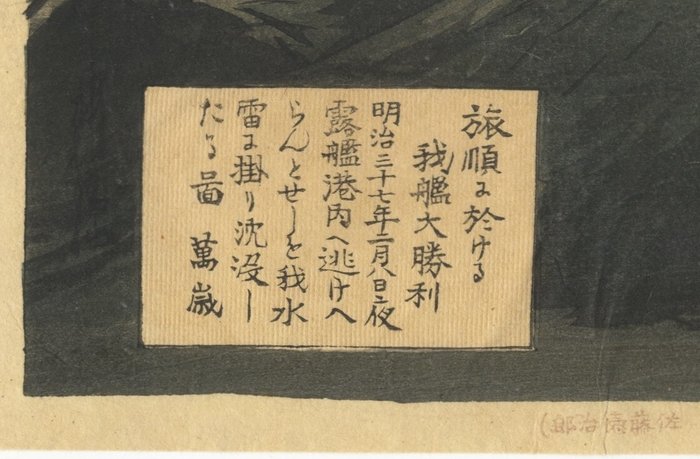 旅順に於ける
我艦大勝利
明治三十七年二月八日夜
露艦港内へ逃けへ
らんとせしを我水
雷に掛り沈没し
たる啚 萬歳